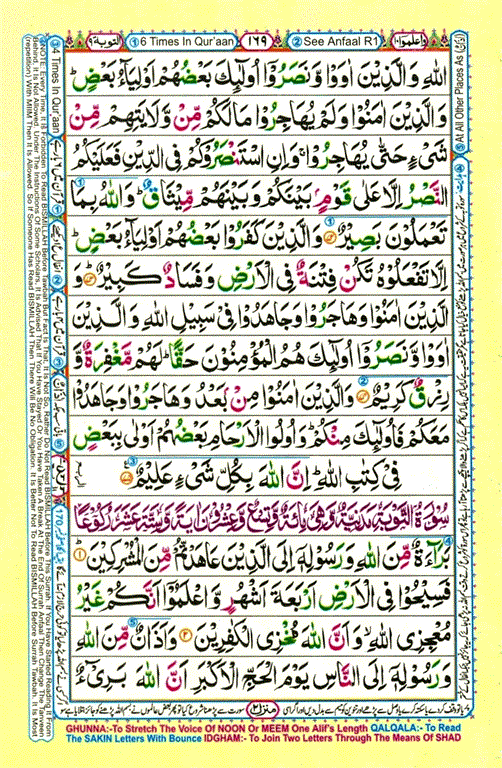 التوبة ٩
① 6 Times In Qur'aan
١٦٩
② See Anfaal R1
واعلموا ١٠
اللهِ وَالَّذِيْنَ اٰوَوْا وَّنَصَرُوْٓا اُولٰٓئِكَ بَعْضُهُمْ اَوْلِيَآءُ بَعْضٍ ؕ
وَالَّذِيْنَ اٰمَنُوْا وَلَمْ يُهَاجِرُوْا مَا لَكُمْ مِّنْ وَّلَايَتِهِمْ مِّنْ
شَیْءٍ حَتّٰى يُهَاجِرُوْا ۚ وَاِنِ اسْتَنْصَرُوْكُمْ فِى الدِّيْنِ فَعَلَيْكُمُ
النَّصْرُ اِلَّا عَلٰى قَوْمٍۭ بَيْنَكُمْ وَبَيْنَهُمْ مِّيْثَاقٌ ؕ وَاللهُ بِمَا
تَعْمَلُوْنَ بَصِيْرٌ ۝ وَالَّذِيْنَ كَفَرُوْا بَعْضُهُمْ اَوْلِيَآءُ بَعْضٍ ؕ
اِلَّا تَفْعَلُوْهُ تَكُنْ فِتْنَةٌ فِى الْاَرْضِ وَفَسَادٌ كَبِيْرٌ ۝ وَ
الَّذِيْنَ اٰمَنُوْا وَهَاجَرُوْا وَجَاهَدُوْا فِىْ سَبِيْلِ اللهِ وَالَّذِيْنَ
اٰوَوْا وَّنَصَرُوْٓا اُولٰٓئِكَ هُمُ الْمُؤْمِنُوْنَ حَقًّا ؕ لَهُمْ مَّغْفِرَةٌ وَّ
رِزْقٌ كَرِيْمٌ ۝ وَالَّذِيْنَ اٰمَنُوْا مِنْۢ بَعْدُ وَهَاجَرُوْا وَجَاهَدُوْا
مَعَكُمْ فَاُولٰٓئِكَ مِنْكُمْ ؕ وَاُولُوا الْاَرْحَامِ بَعْضُهُمْ اَوْلٰى بِبَعْضٍ
فِىْ كِتٰبِ اللهِ ؕ اِنَّ اللهَ بِكُلِّ شَیْءٍ عَلِيْمٌ ۝
سُوْرَةُ التَّوْبَةِ مَدَنِيَّةٌ وَّهِىَ مِائَةٌ وَّتِسْعٌ وَّعِشْرُوْنَ اٰيَةً وَّسِتَّةَ عَشَرَ رُكُوْعًا
بَرَآءَةٌ مِّنَ اللهِ وَرَسُوْلِهٖٓ اِلَى الَّذِيْنَ عَاهَدْتُّمْ مِّنَ الْمُشْرِكِيْنَ ۝١
فَسِيْحُوْا فِى الْاَرْضِ اَرْبَعَةَ اَشْهُرٍ وَّاعْلَمُوْٓا اَنَّكُمْ غَيْرُ
مُعْجِزِى اللهِ ۙ وَاَنَّ اللهَ مُخْزِى الْكٰفِرِيْنَ ۝٢ وَاَذَانٌ مِّنَ اللهِ
وَرَسُوْلِهٖٓ اِلَى النَّاسِ يَوْمَ الْحَجِّ الْاَكْبَرِ اَنَّ اللهَ بَرِىْٓءٌ
منزل ٢
⑤ At All Other Places As
③ 4 Times In Qur'aan
NOTE :Every Time, It Is Forbidden To Read BISMILLAH Before Tawbah But Fact Is That, It Is Not So, Rather Do Not Read BISMILLAH Before This Surrah, If You Have Started Reading It From
Behind, It Is Not Allowed. Under The Instructions Of Some Scholars, It Is Advised That If You Have Stayed Or You Have Taken A Break At The End Of Surrah Anfaal Then Change The Tanveen
(repetition) With MIIM Then It Is Allowed. So If Someone Has Read BISMILLAH Then There Will Be No Obligation. It Is Better Not To Read BISMILLAH Before Surrah Tawbah. It Is Most
GHUNNA:-To Stretch The Voice Of NOON Or MEEM One Alif's Length QALQALA:- To Read
The SAKIN Letters With Bounce IDGHAM:- To Join Two Letters Through The Means Of SHAD